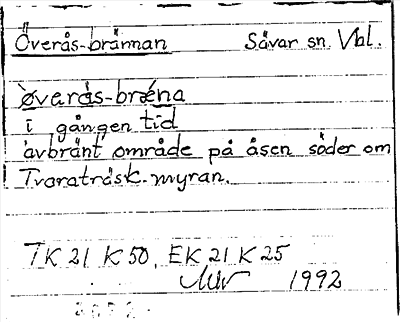 Överås-brännan Sävar sn. Vbl.
òverås-brǽna
i gången tid
avbränt område på åsen söder om
Tvaraträsk-myran.
TK 21 K 50, EK 21 K 25
1992